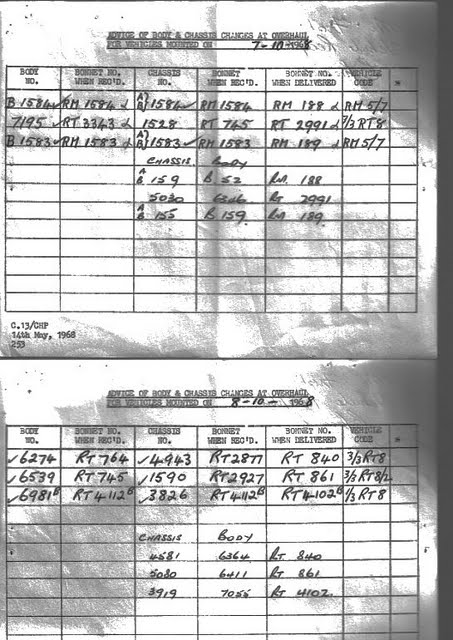 ADVICE OF BODY & CHASSIS CHANGES AT OVERHAUL
FOR VEHICLES MOUNTED ON 7-10-1968
BODY NO. BONNET NO. WHEN REC'D. CHASSIS NO. BONNET WHEN REC'D. BONNET NO. WHEN DELIVERED VEHICLE CODE *
B 1584 ✓ RM 1584 d A) B) 1584 ✓ RM 1584 RM 188 d RM 5/7
7195 ✓ RT 3343 d 1528 RT 745 RT 2991 d 7/3 RT8
B 1583 ✓ RM 1583 d A) B) 1583 ✓ RM 1583 RM 189 d RM 5/7
CHASSIS. BODY.
A B 159 B 52 RM 188
5030 6346 RT 2991
A B 155 B 159 RM 189.
C.13/CHP
14th May, 1968
253
ADVICE OF BODY & CHASSIS CHANGES AT OVERHAUL
FOR VEHICLES MOUNTED ON 8-10-1968
BODY NO. BONNET NO. WHEN REC'D. CHASSIS NO. BONNET WHEN REC'D. BONNET NO. WHEN DELIVERED VEHICLE CODE *
✓6274 RT 764 ✓4943 RT2877 RT 840 3/3 RT8
✓6539 RT 745 ✓1590 RT2927 RT 861 3/3 RT8/2
✓6981B RT4112B ✓3826 RT4112B RT4102B 1/3 RT8
CHASSIS BODY
4581 6364 RT 840
5080 6411 RT 861
3919 7055 RT 4102